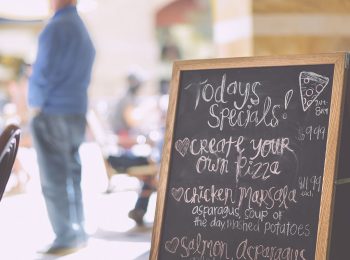 Today's
Specials!
7pm-
8pm
Create your
own pizza $9.99
Chicken Marsala
asparagus, soup of
the day, mashed potatoes
Salmon Asparagus